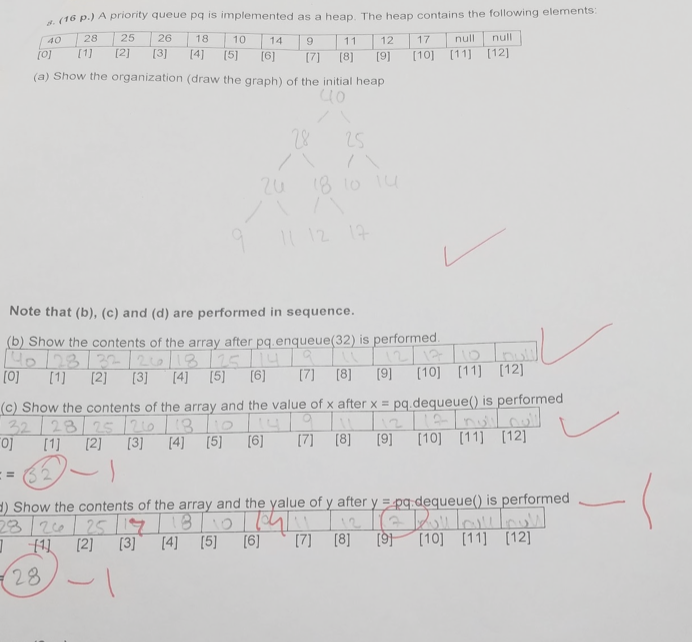 (16 p.) A priority queue pq is implemented as a heap. The heap contains the following elements:
40 28 25 26 18 10 14 9 11 12 17 null null
[0] [1] [2] [3] [4] [5] [6] [7] [8] [9] [10] [11] [12]
(a) Show the organization (draw the graph) of the initial heap
40
28 25
26 18 10 14
9 11 12 17
Note that (b), (c) and (d) are performed in sequence.
(b) Show the contents of the array after pq.enqueue(32) is performed.
40 28 32 26 18 25 14 9 11 12 17 10 null
[0] [1] [2] [3] [4] [5] [6] [7] [8] [9] [10] [11] [12]
(c) Show the contents of the array and the value of x after x = pq.dequeue() is performed
32 28 25 26 18 10 14 9 11 12 17 null null
0] [1] [2] [3] [4] [5] [6] [7] [8] [9] [10] [11] [12]
= 32 - 1
) Show the contents of the array and the value of y after y = pq.dequeue() is performed - 1
28 26 25 18 10 11 12 null null null
] [1] [2] [3] [4] [5] [6] [7] [8] [9] [10] [11] [12]
28 - 1